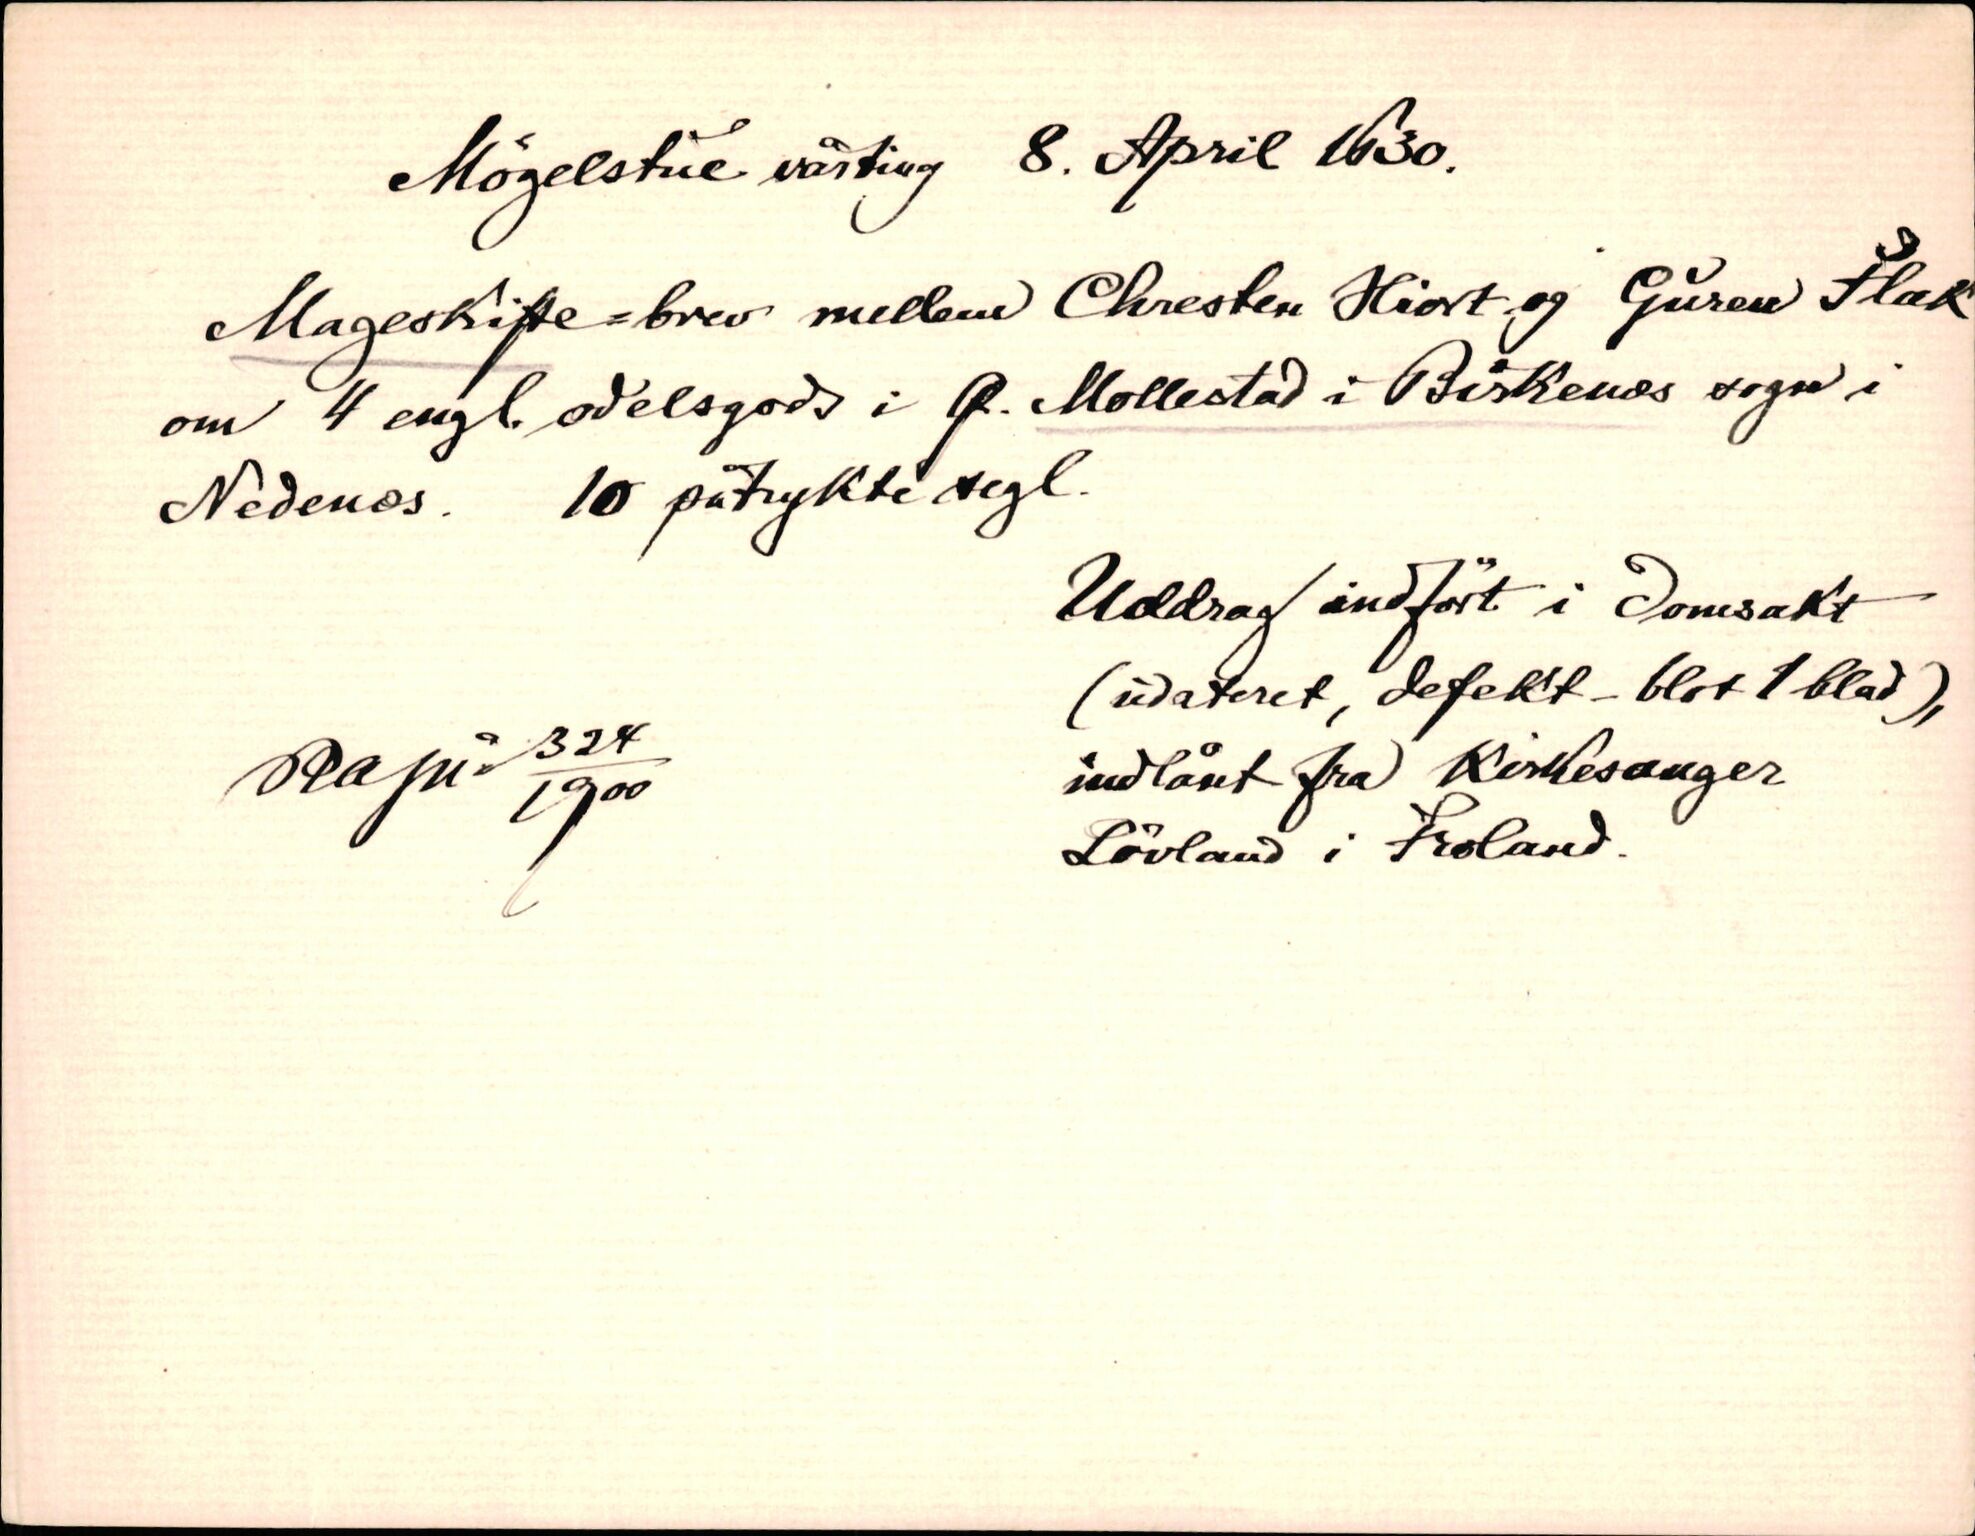 Mögelstue vårting 8. April 1630.
Mageskifte=brev mellem Chresten Hiort og Guren Flak
om 4 engl. odelsgods i Ø. Mollestad i Birkenæs sogn i
Nedenæs. 10 påtrykte segl.
Uddrag indfört i Domsakt
(udateret, defekt - blot 1 blad),
indlånt fra Kirkesanger
Lövland i Froland.
RA jn: 324/1900